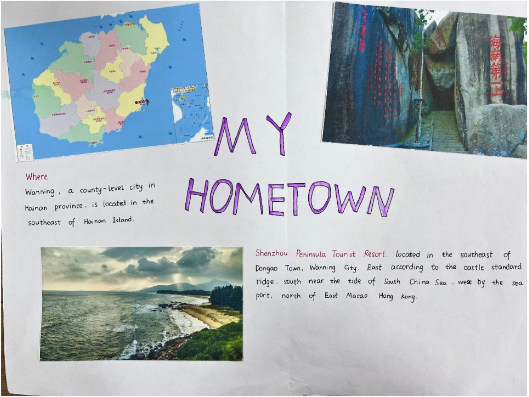 海南第一山
MY
HOMETOWN
Where
Wanning, a county-level city in
Hainan province, is located in the
southeast of Hainan Island.
Shenzhou Peninsula Tourist Resort, located in the southeast of
Dongao Town, Wanning City. East according to the cattle standard
ridge, south near the tide of South China Sea, west by the sea
port, north of East Macao Hong Kong.